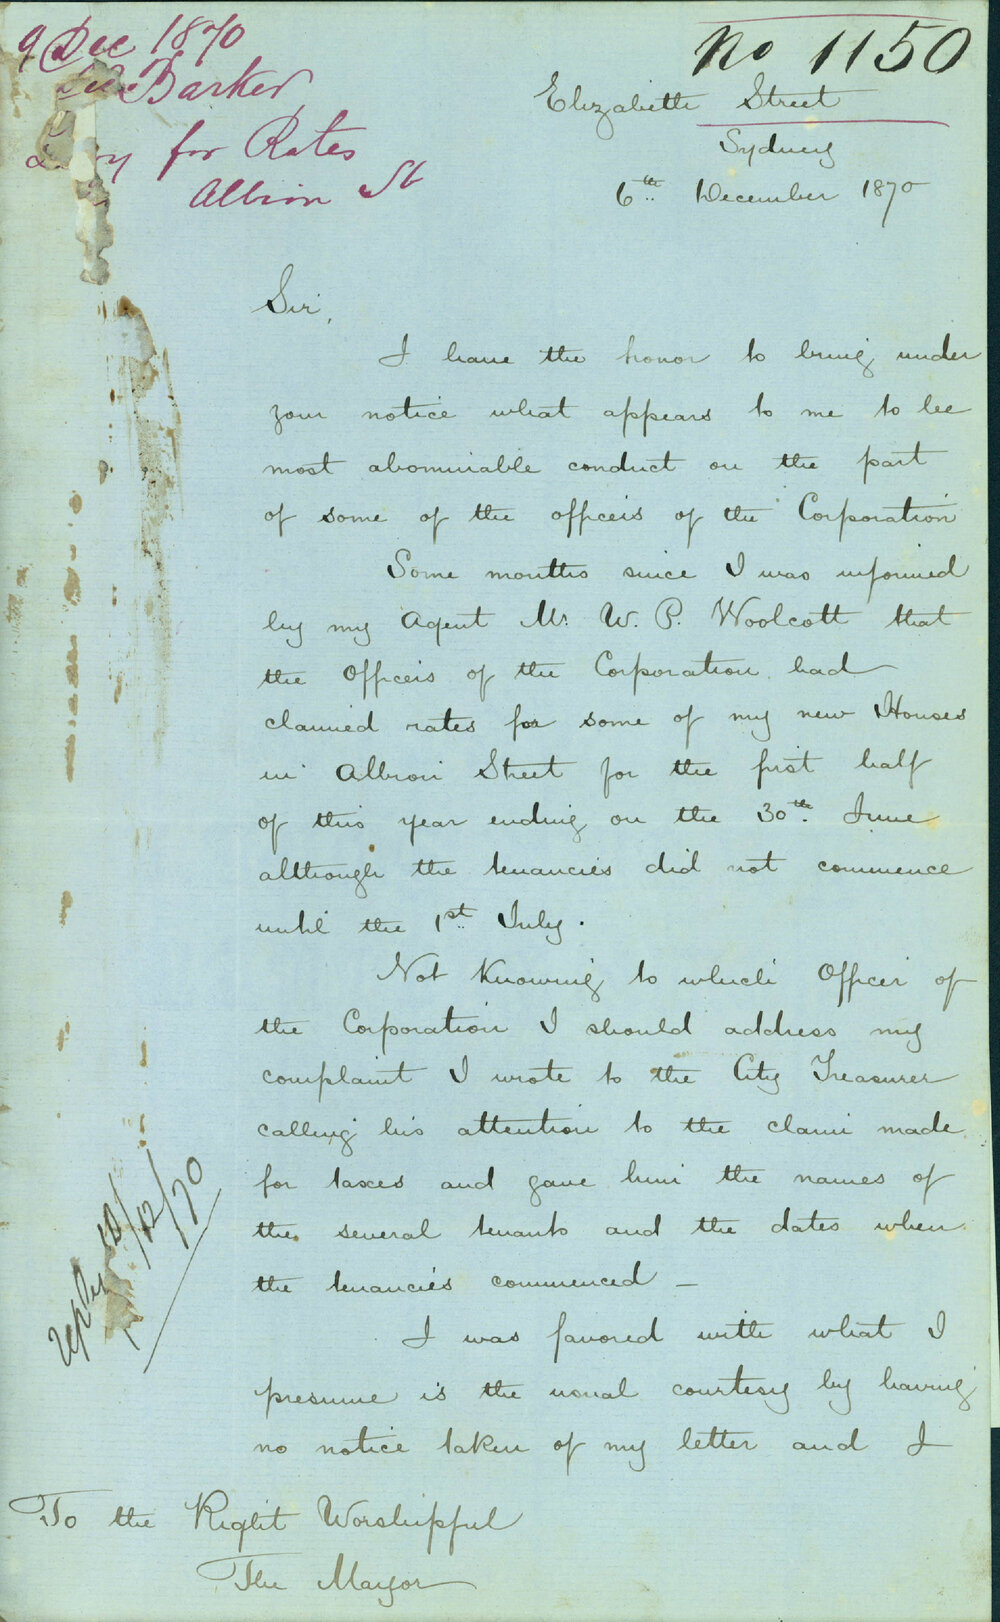 9 Dec 1870
Barker
for Rates
Albion St
No 1150
Elizabeth Street
Sydney
6th December 1870
Sir,
I have the honor to bring under
your notice what appears to me to be
most abominable conduct on the part
of some of the officers of the Corporation
Some months since I was informed
by my Agent Mr. W. P. Woolcott that
the Officers of the Corporation had
claimed rates for some of my new Houses
in Albion Street for the first half
of this year ending on the 30th June
although the tenancies did not commence
until the 1st July.
Not knowing to which Officer of
the Corporation I should address my
complaint I wrote to the City Treasurer
calling his attention to the claim made
for taxes and gave him the names of
the several tenants and the dates when
the tenancies commenced —
I was favored with what I
presume is the usual courtesy by having
no notice taken of my letter and I
To the Right Worshipful
The Mayor
/12/70